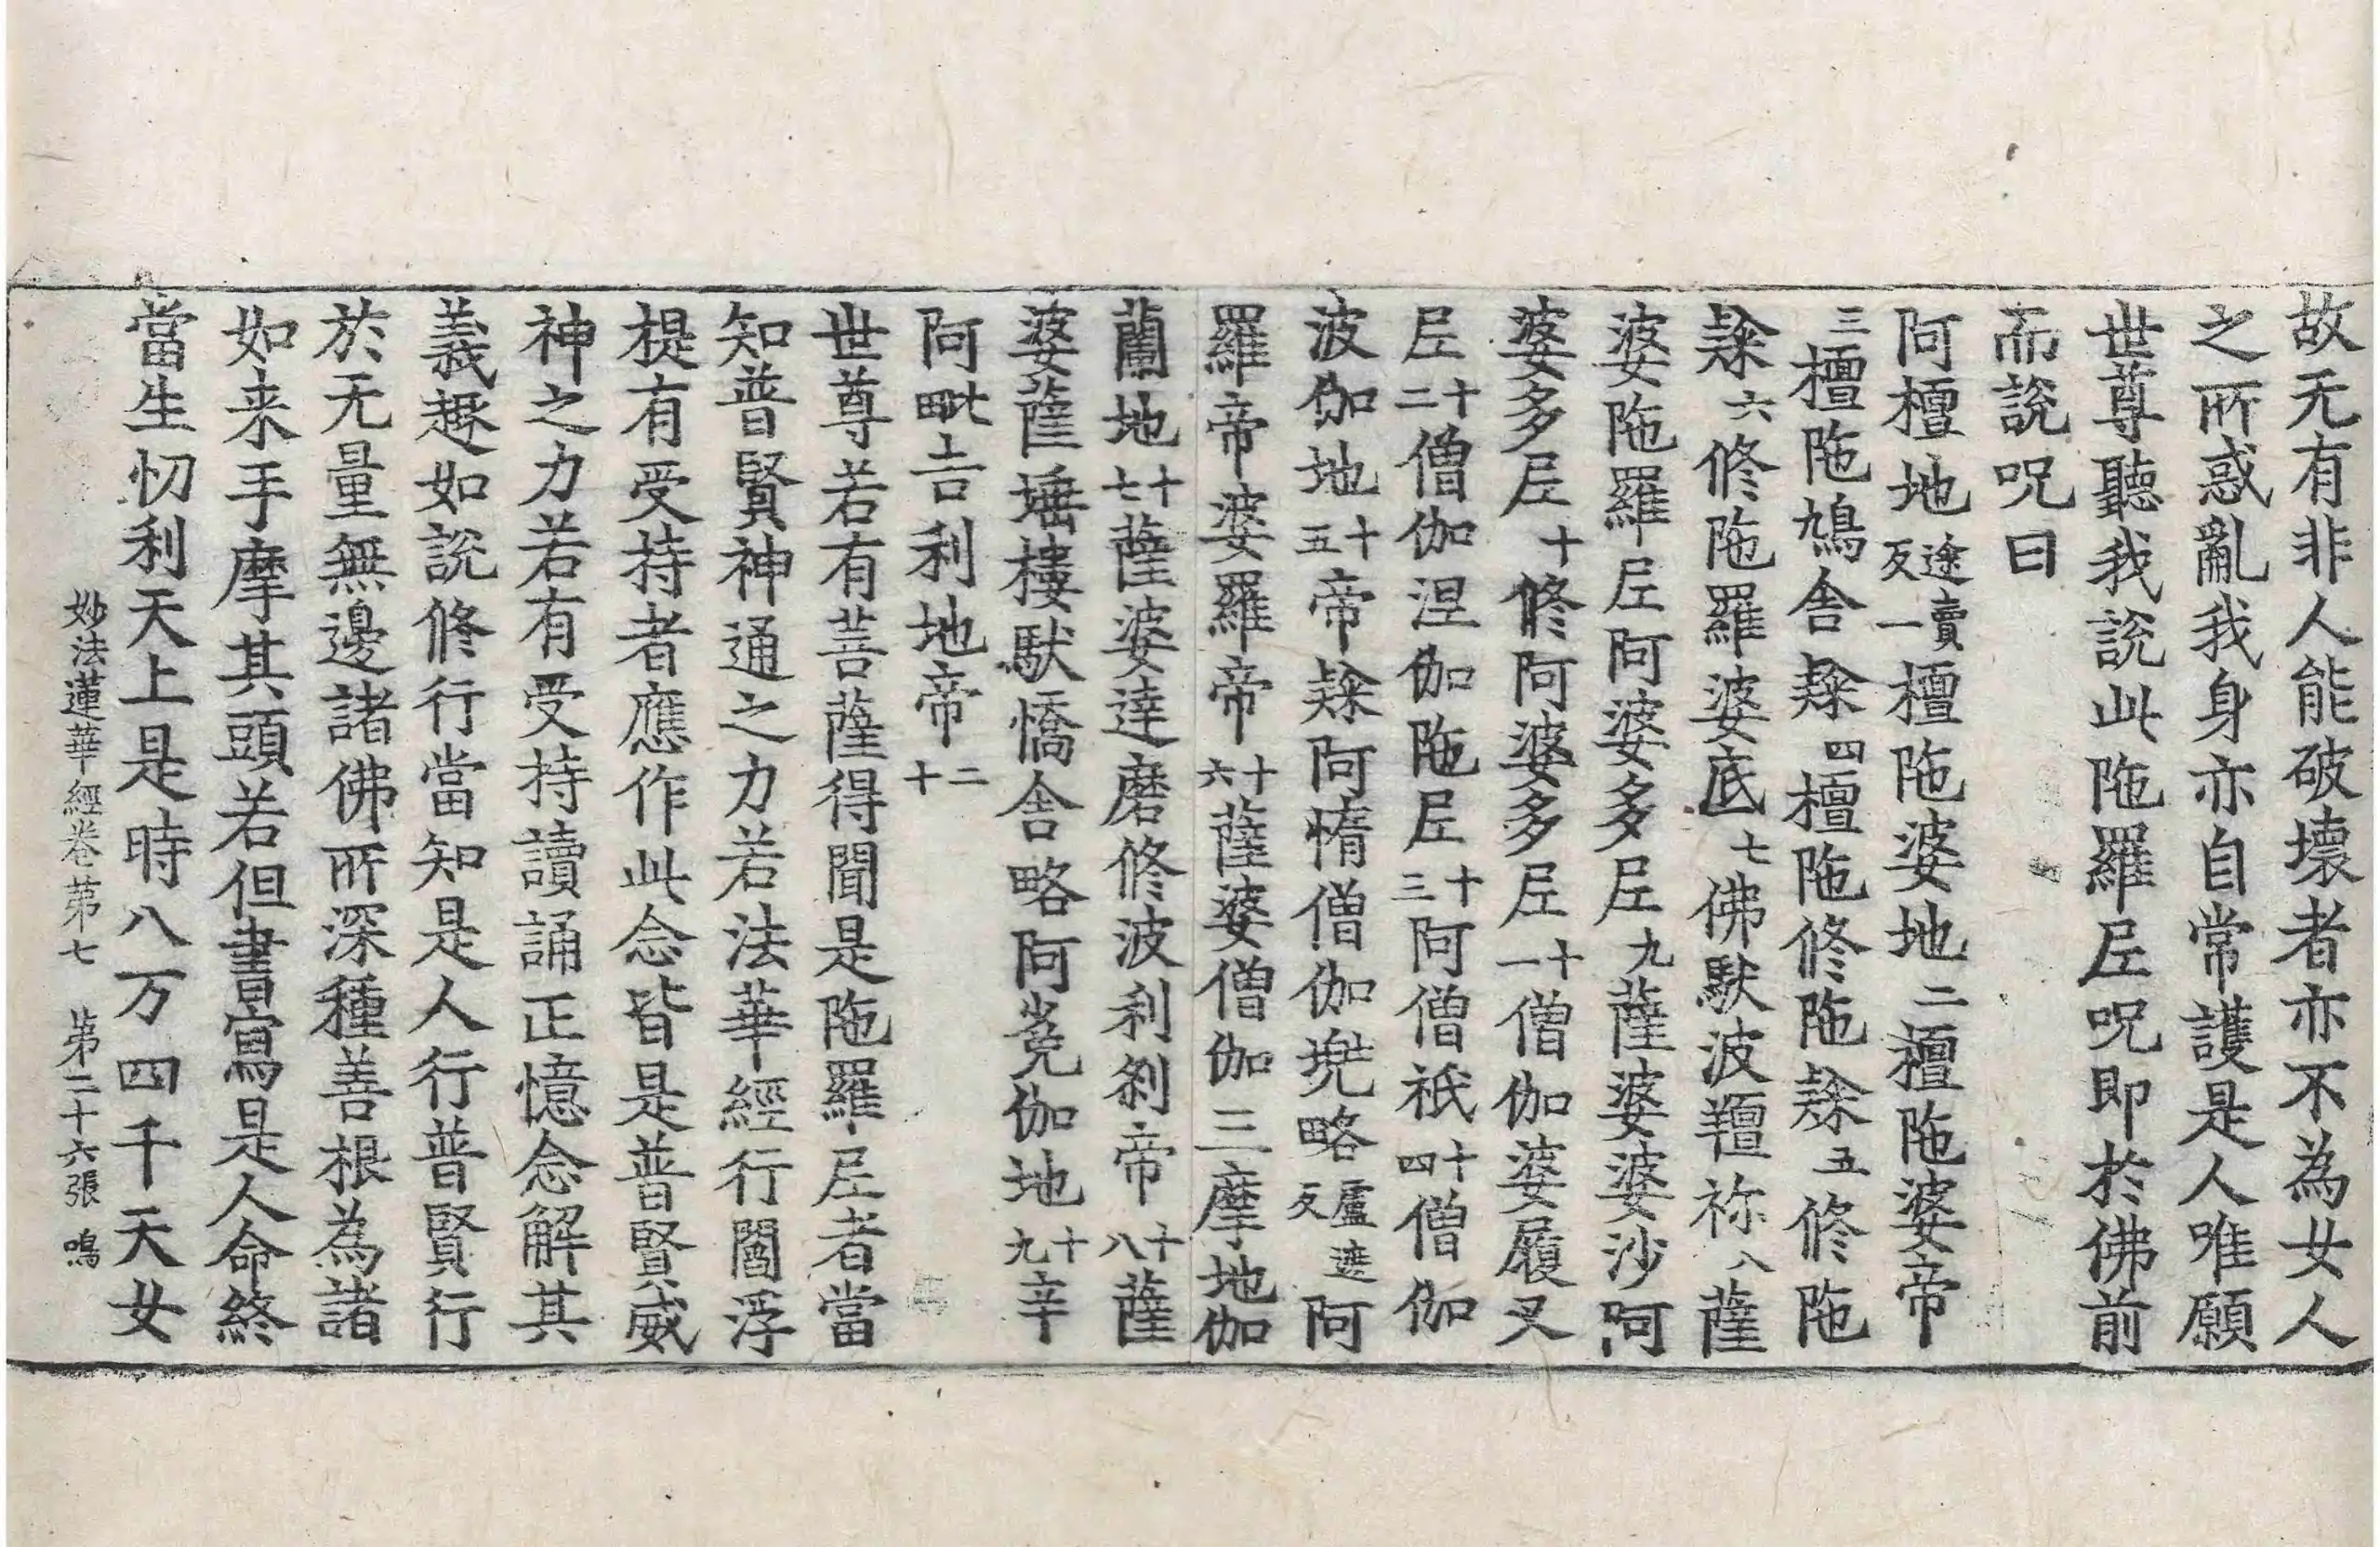 故无有非人能破壞者亦不為女人
之所惑亂我身亦自常護是人唯願
世尊聽我說此陁羅𡰱呪即於佛前
而說呪曰
阿檀地途賣反一檀陁婆地二檀陁婆帝
三檀陁鳩舍隸四檀陁修陁隸五修陁
隸六修陁羅婆底七佛馱波羶祢八薩
婆陁羅𡰱阿婆多𡰱九薩婆婆沙阿
婆多𡰱十修阿婆多𡰱十一僧伽婆履叉
𡰱十二僧伽涅伽陁𡰱十三阿僧祇十四僧伽
波伽地十五帝隸阿惰僧伽兠略盧遮反阿
羅帝婆羅帝十六薩婆僧伽三摩地伽
蘭地十七薩婆達磨修波利剎帝十八薩
婆薩埵樓馱憍舍略阿㝹伽地十九辛
阿毗吉利地帝二十
世尊若有菩薩得聞是陁羅𡰱者當
知普賢神通之力若法華經行閻浮
提有受持者應作此念皆是普賢威
神之力若有受持讀誦正憶念解其
義趣如說修行當知是人行普賢行
於无量無邊諸佛所深種善根為諸
如来手摩其頭若但書寫是人命終
當生忉利天上是時八万四千天女
妙法蓮華經卷第七 第二十六張 鳴